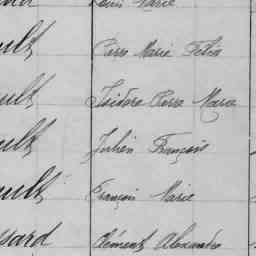 Louis Marie
ult Pierre Marie Félix
ult Isidore Pierre Marie
ult Julien François
ult François Marie
sard Clément Alexandre